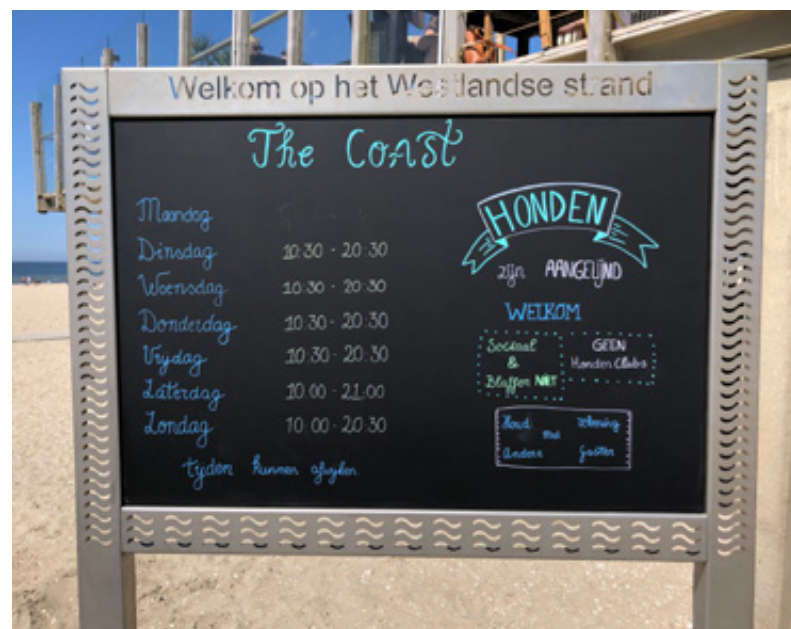 Welkom op het Westlandse strand
The Coast
Maandag
Dinsdag 10:30 - 20:30
Woensdag 10:30 - 20:30
Donderdag 10:30 - 20:30
Vrijdag 10:30 - 20:30
Zaterdag 10:00 - 21:00
Zondag 10:00 - 20:30
tijden kunnen afwijken
HONDEN
zijn AANGELIJND
WELKOM
Sociaal
&
Blaffen NIET
GEEN
Honden Clubs
Houd rekening
met
andere gasten